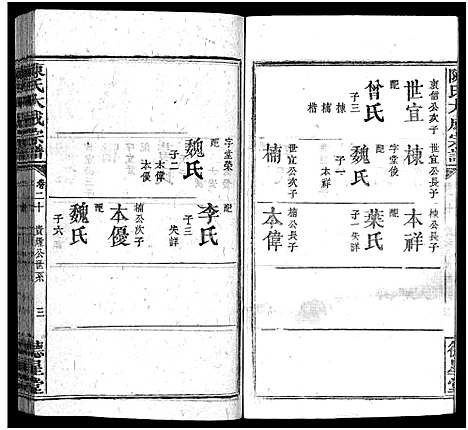 陳氏大成宗譜
德星堂
世宜
衷僖公次子
配
曾氏
子三
棟
楠
楷
棟
世宜公長子
字堂俊
配
魏氏
子一
本祥
本祥
棟公長子
配
葉氏
子一失詳
楠
世宜公次子
本偉
楠公長子
字堂榮
配
魏氏
子二
本偉
本優
配
李氏
子三
失詳
本優
楠公次子
配
魏氏
子六
陳氏大成宗譜
卷二十
公世系
三
德星堂